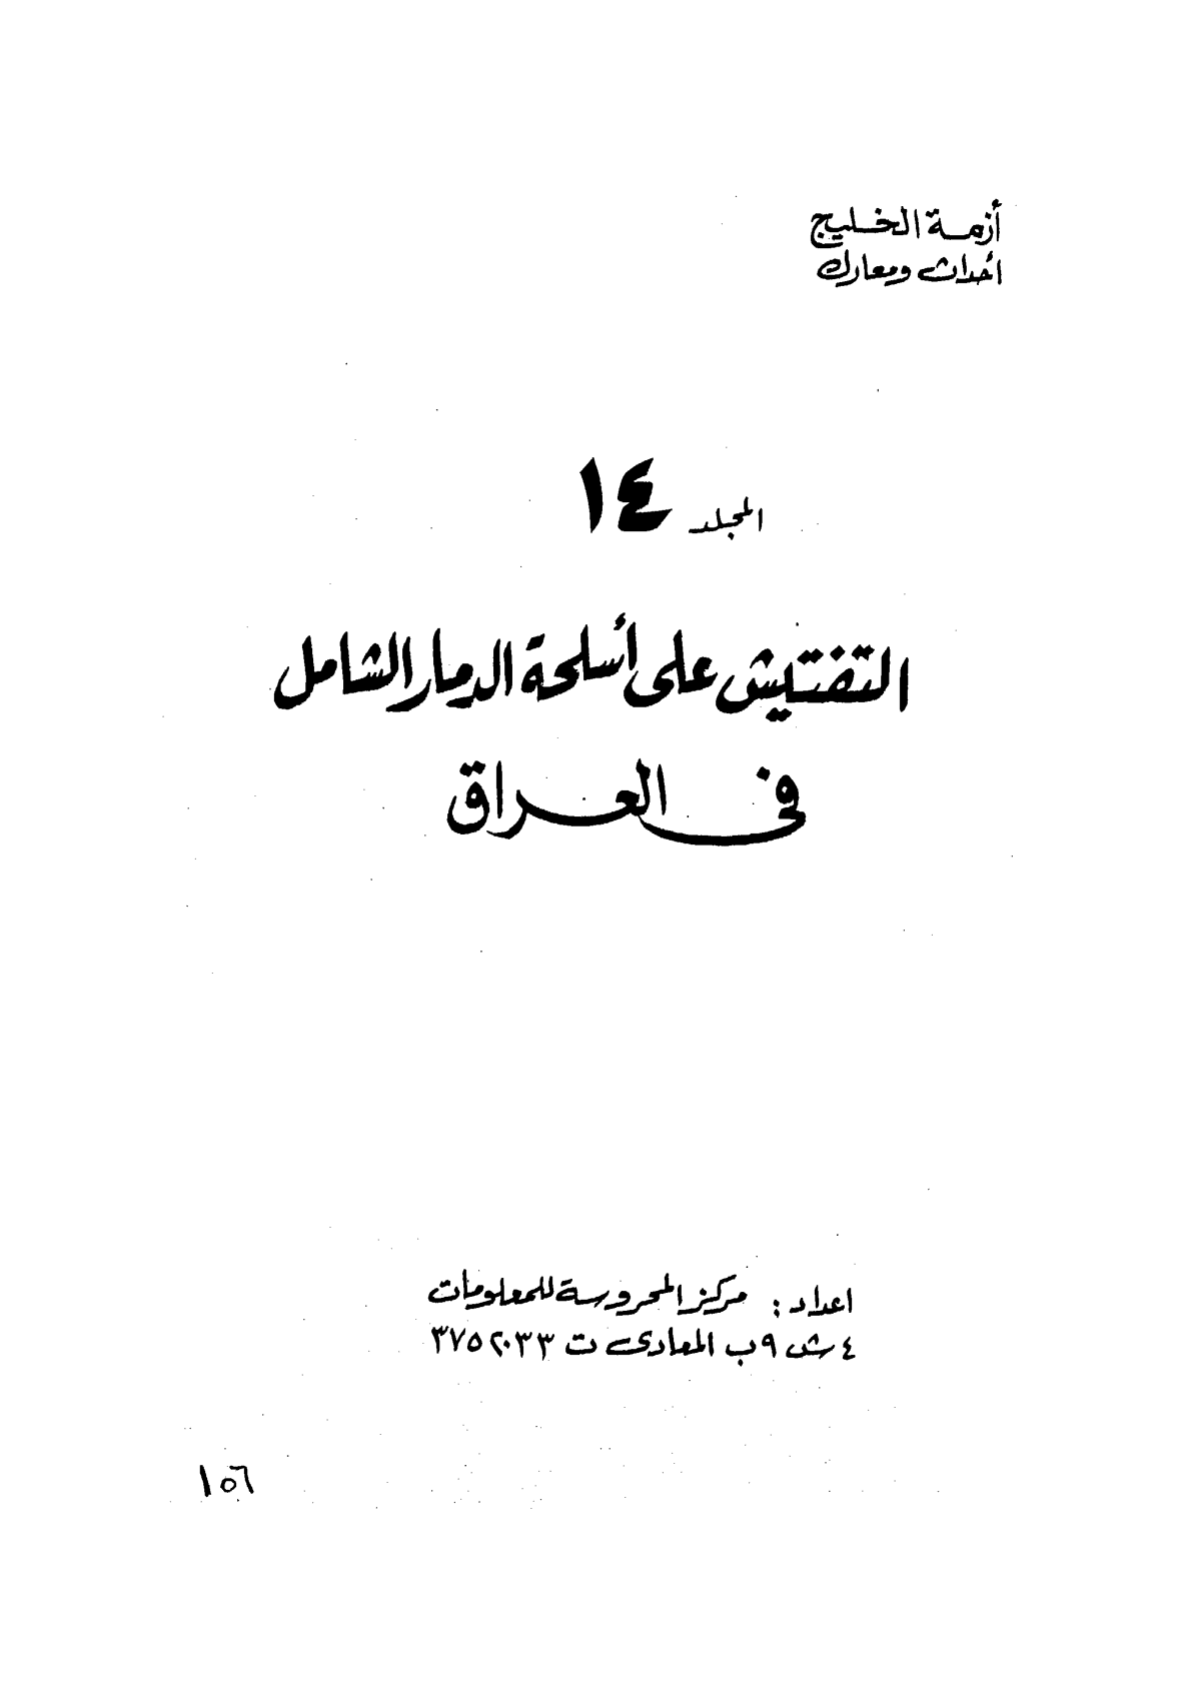 أزمة الخليج
أحداث ومعارك
المجلد ١٤
التفتيش على أسلحة الدمار الشامل
فى العراق
اعداد : مركز المحروسة للمعلومات
٤ ش ٩ب المعادى ت ٣٧٥٢٠٣٣
١٥٦